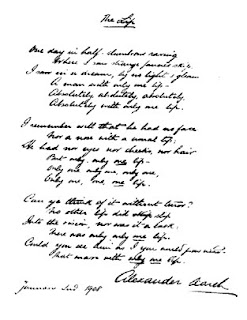 The Lip
One day in half-slumbrous raving
Where I saw strange fancies skip,
I saw in a dream, by no light's gleam
A man with only one lip -
Absolutely, absolutely, absolutely
Absolutely with only one lip.
I remember well that he had no face
Nor a nose with a usual tip;
He had nor eyes nor cheeks, nor hair
But only, only one lip -
Only one only one, only one,
Only one, one, one lip.
Can ye think of it without terror?
No other lip did
the vision, nor was it a
There was only, only one lip.
Could you see him as I
That man with only one lip.
Alexander
January 2nd 1908